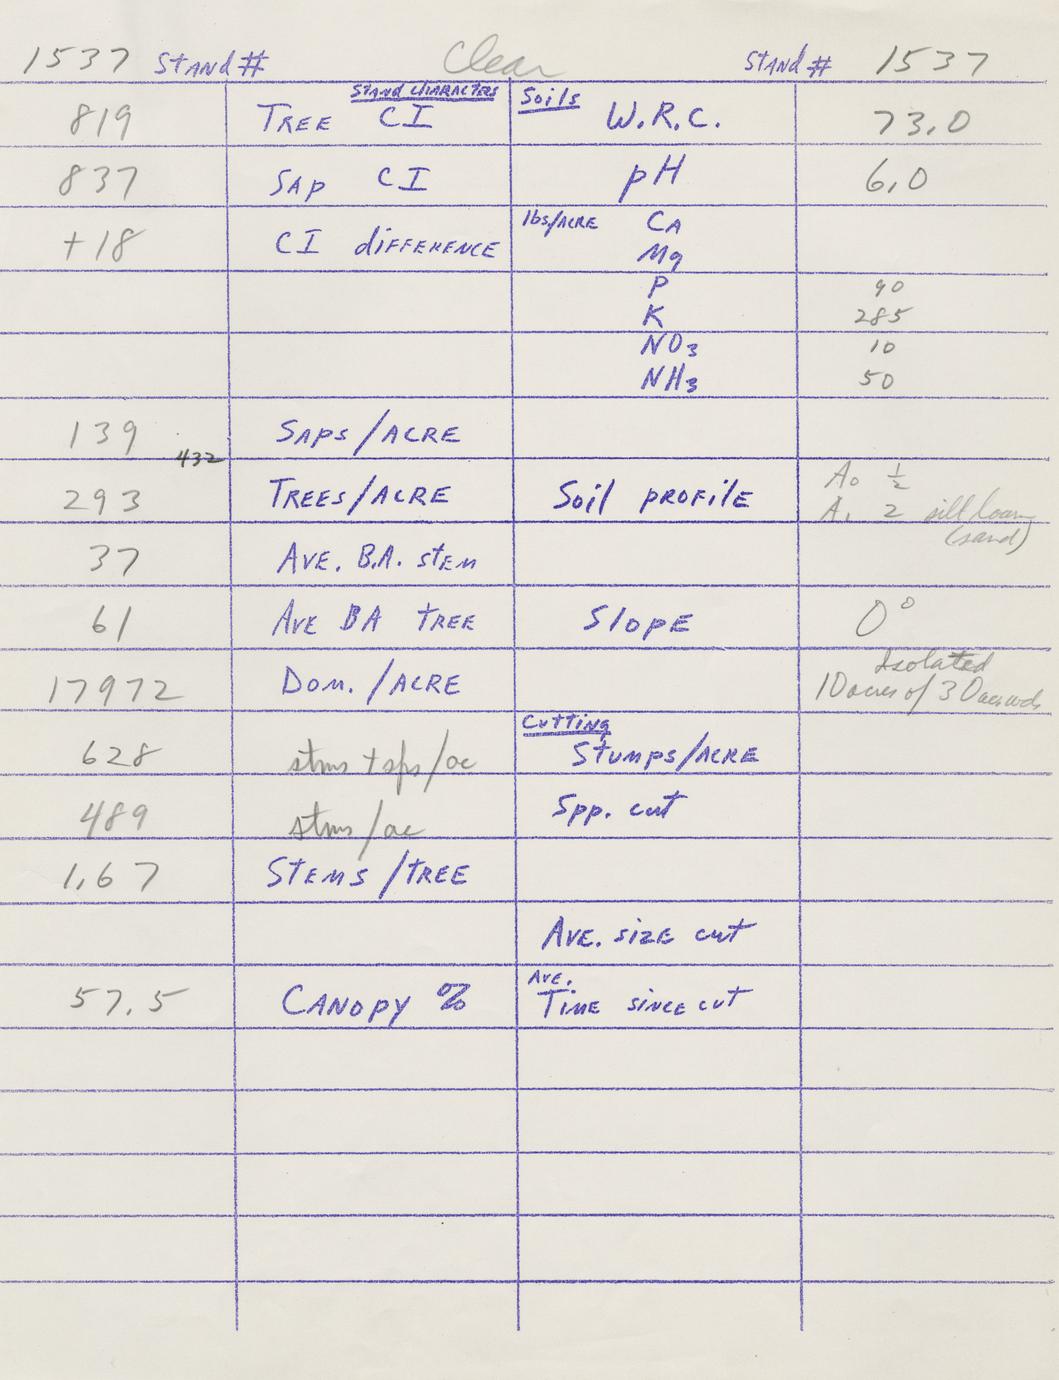 1537 Stand # Clear Stand # 1537
Stand Characters Soils
819 Tree CI W.R.C. 73.0
837 Sap CI pH 6.0
+18 CI difference lbs/Acre Ca
Mg
P 90
K 285
NO3 10
NH3 50
139 Saps/Acre
432
293 Trees/Acre Soil profile A0 1/2
A1 2 silt loam
(sand)
37 Ave. B.A. stem
61 Ave BA tree Slope 0°
Isolated
17972 Dom./Acre 10 acres of 30 acre wds
Cutting
628 stms + sps/ac Stumps/Acre
489 stms/ac Spp. cut
1.67 Stems/tree
Ave. size cut
Ave.
57.5 Canopy % Time since cut